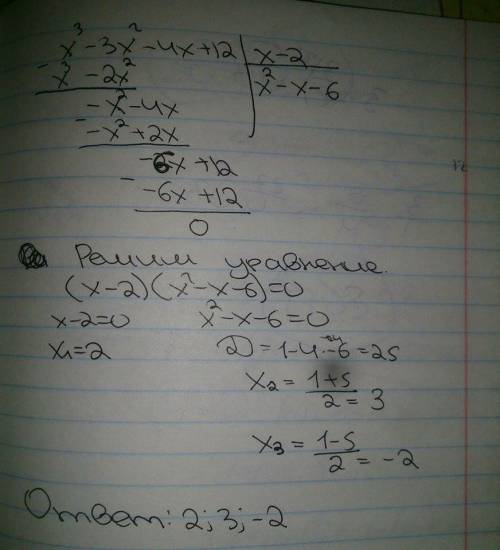 x³ - 3x² - 4x + 12 | x - 2
- x³ - 2x² | x² - x - 6
- x² - 4x
- - x² + 2x
- 6x + 12
- - 6x + 12
0
Решим уравнение.
(x - 2)(x² - x - 6) = 0
x - 2 = 0 x² - x - 6 = 0
x₁ = 2 D = 1 - 4 · - 6 = 25
x₂ = (1 + 5)/2 = 3
x₃ = (1 - 5)/2 = - 2
Ответ: 2; 3; - 2